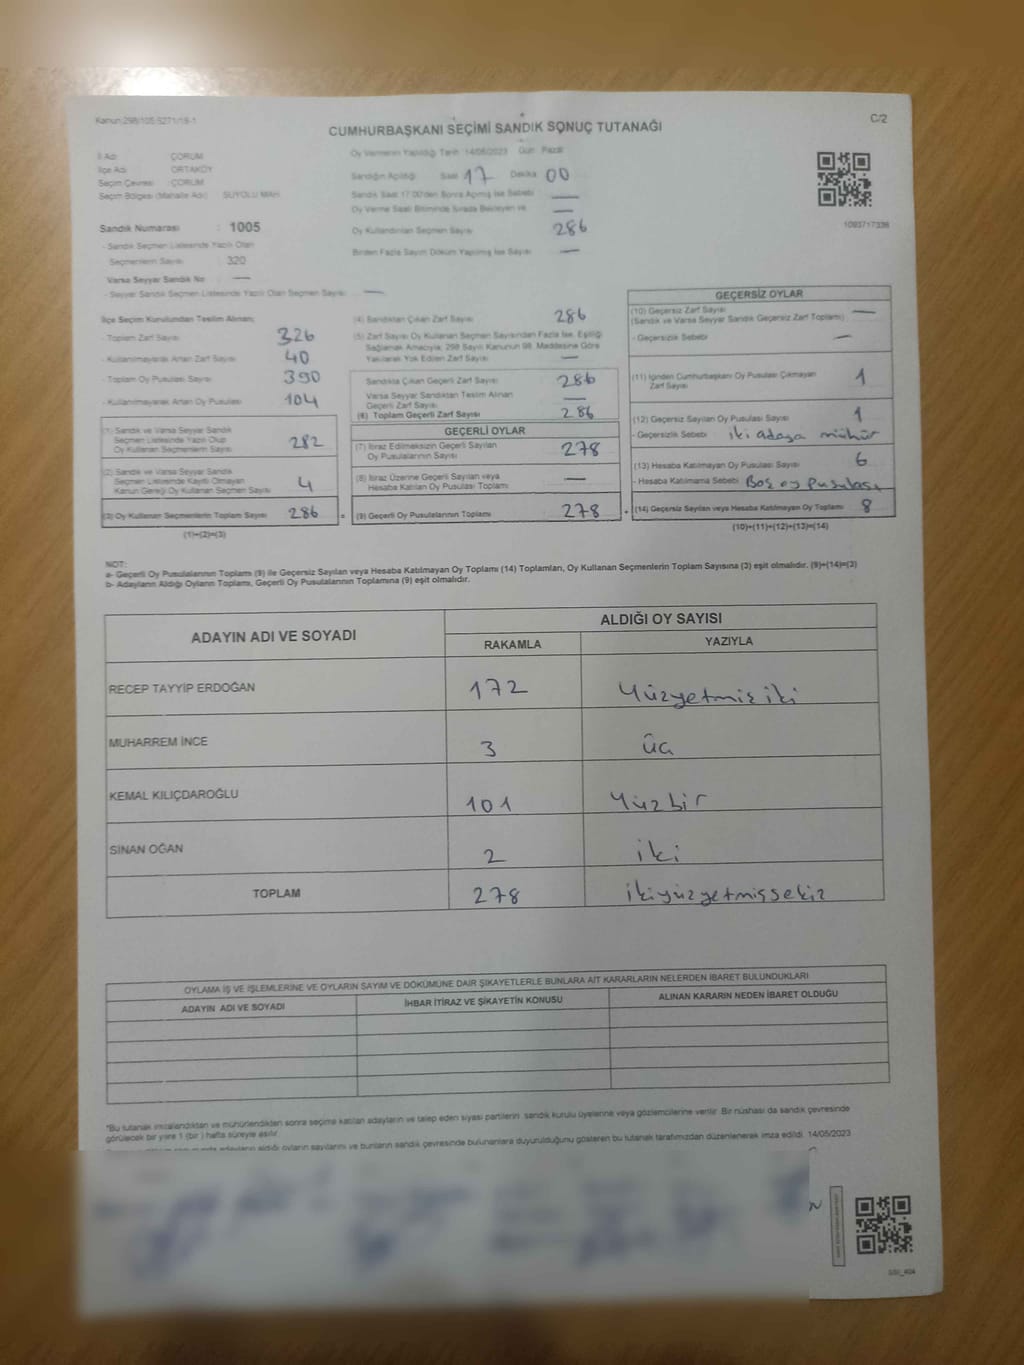 Kanun:298/105-5271/19-1
C/2
CUMHURBAŞKANI SEÇİMİ SANDIK SONUÇ TUTANAĞI
İl Adı : ÇORUM
İlçe Adı : ORTAKÖY
Seçim Çevresi : ÇORUM
Seçim Bölgesi (Mahalle Adı) : SUYOLU MAH.
Oy Vermenin Yapıldığı Tarih 14/05/2023 Gün Pazar
Sandığın Açıldığı Saat 17 Dakika 00
Sandık Saat 17:00'den Sonra Açılmış İse Sebebi —
Oy Verme Saati Bitiminde Sırada Bekleyen ve —
Oy Kullandırılan Seçmen Sayısı 286
Birden Fazla Sayım Döküm Yapılmış İse Sayısı —
1093717336
Sandık Numarası : 1005
- Sandık Seçmen Listesinde Yazılı Olan
Seçmenlerin Sayısı : 320
Varsa Seyyar Sandık No —
- Seyyar Sandık Seçmen Listesinde Yazılı Olan Seçmen Sayısı —
İlçe Seçim Kurulundan Teslim Alınan;
- Toplam Zarf Sayısı 326
- Kullanılmayarak Artan Zarf Sayısı 40
- Toplam Oy Pusulası Sayısı 390
- Kullanılmayarak Artan Oy Pusulası 104
(1) Sandık ve Varsa Seyyar Sandık
Seçmen Listesinde Yazılı Olup
Oy Kullanan Seçmenlerin Sayısı 282
(2) Sandık ve Varsa Seyyar Sandık
Seçmen Listesinde Kayıtlı Olmayan
Kanun Gereği Oy Kullanan Seçmen Sayısı 4
(3) Oy Kullanan Seçmenlerin Toplam Sayısı 286 =
(1)+(2)=(3)
(4) Sandıktan Çıkan Zarf Sayısı 286
(5) Zarf Sayısı Oy Kullanan Seçmen Sayısından Fazla İse, Eşitliği
Sağlamak Amacıyla, 298 Sayılı Kanunun 98. Maddesine Göre
Yakılarak Yok Edilen Zarf Sayısı —
Sandıkta Çıkan Geçerli Zarf Sayısı 286
Varsa Seyyar Sandıktan Teslim Alınan
Geçerli Zarf Sayısı —
(6) Toplam Geçerli Zarf Sayısı 286
GEÇERLİ OYLAR
(7) İtiraz Edilmeksizin Geçerli Sayılan
Oy Pusulalarının Sayısı 278
(8) İtiraz Üzerine Geçerli Sayılan veya
Hesaba Katılan Oy Pusulası Toplamı —
(9) Geçerli Oy Pusulalarının Toplamı 278 +
GEÇERSİZ OYLAR
(10) Geçersiz Zarf Sayısı —
(Sandık ve Varsa Seyyar Sandık Geçersiz Zarf Toplamı)
- Geçersizlik Sebebi —
(11) İçinden Cumhurbaşkanı Oy Pusulası Çıkmayan
Zarf Sayısı 1
(12) Geçersiz Sayılan Oy Pusulası Sayısı 1
- Geçersizlik Sebebi iki adaya mühür
(13) Hesaba Katılmayan Oy Pusulası Sayısı 6
- Hesaba Katılmama Sebebi Boş oy pusulası
(14) Geçersiz Sayılan veya Hesaba Katılmayan Oy Toplamı 8
(10)+(11)+(12)+(13)=(14)
NOT:
a- Geçerli Oy Pusulalarının Toplamı (9) ile Geçersiz Sayılan veya Hesaba Katılmayan Oy Toplamı (14) Toplamları, Oy Kullanan Seçmenlerin Toplam Sayısına (3) eşit olmalıdır. (9)+(14)=(3)
b- Adayların Aldığı Oyların Toplamı, Geçerli Oy Pusulalarının Toplamına (9) eşit olmalıdır.
ADAYIN ADI VE SOYADI
ALDIĞI OY SAYISI
RAKAMLA YAZIYLA
RECEP TAYYİP ERDOĞAN 172 Yüzyetmiş iki
MUHARREM İNCE 3 üç
KEMAL KILIÇDAROĞLU 101 Yüzbir
SİNAN OĞAN 2 iki
TOPLAM 278 ikiyüzyetmişsekiz
OYLAMA İŞ VE İŞLEMLERİNE VE OYLARIN SAYIM VE DÖKÜMÜNE DAİR ŞİKAYETLERLE BUNLARA AİT KARARLARIN NELERDEN İBARET BULUNDUKLARI
ADAYIN ADI VE SOYADI İHBAR İTİRAZ VE ŞİKAYETİN KONUSU ALINAN KARARIN NEDEN İBARET OLDUĞU
*Bu tutanak imzalandıktan ve mühürlendikten sonra seçime katılan adayların ve talep eden siyasi partilerin sandık kurulu üyelerine veya gözlemcilerine verilir. Bir nüshası da sandık çevresinde
görülecek bir yere 1 (bir) hafta süreyle asılır.
adayların aldığı oyların sayılarını ve bunların sandık çevresinde bulunanlara duyurulduğunu gösteren bu tutanak tarafımızdan düzenlenerek imza edildi. 14/05/2023